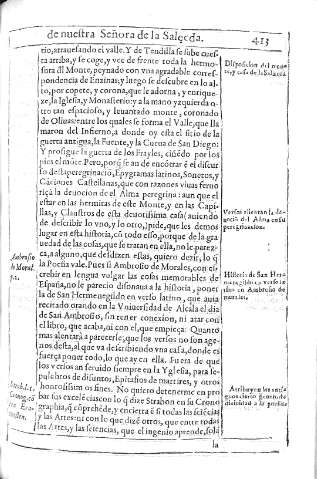 de nuestra Señora de la Salceda.
413
rio, atrauesando el valle. Y de Tendilla se sube cues
ta arriba, y se coge, y vee de frente toda la hermo
sura dl Monte, peynado con vna agradable corres-
pondencia de Enzinas, y luego se descubre en lo al-
to, por copete, y corona, que le adorna, y enrique-
ze, la Iglesia, y Monasterio: y a la mano yzquierda o-
tro tan espacioso, y leuantado monte, coronado
de Oliuas, entre los quales se forma el Valle, que lla
maron del Infierno, a donde oy esta el sitio de la
guerra antigua, la Fuente, y la Cueua de San Diego:
Y prosigue la guerra de los Frayles, ciñédo por los
pies el móte. Pero, porq̃ se an de encótrar é el discur
so desta peregrinació, Epygramas latinos, Sonetos, y
Canciones Castellanas, que con razones viuas ferno
riçá la deuocion de el Alma peregrina: aun que el
estar en las hermitas de este Monte, y en las Capi-
llas, y Claustros de esta deuotissima casa (auiendo
de describir lo vno, y lo otro,) pide, que les demos
lugar en esta historia, có todo esso, porque de la gra
uedad de las cosas, que se tratan en ella, no le parez-
ca, a alguno, que desdizen estas, quiero dezir, lo q̃
la Poesia vale. Pues si Ambrosio de Morales, con es-
crebir en lengua vulgar las cosas memorables de
España, no le parecio disonaua a la historia, poner
la de San Hermenegildo en verso latino, que auia
recitado orando en la Vniuersidad de Alcala el dia
de San Ambrosio, sin tener conexion, ni atar con
el libro, que acaba, ni con el, que empieça: Quanto
mas alentará a parecerse, que los versos no son age-
nos desta, al que va describiendo vna casa, donde es
fuerça poner todo, lo que ay en ella. Fuera de que
los versos an seruido siempre en la Yglesia, para se-
pulchros de difuntos, Epitafios de martires, y otros
honrosissimos fines. No quiero detenerme en pro
bar sus excelécias con lo q̃ dize Strabon en su Crono
graphia, q̃ cóprehéde, y encierra é si todas las sciécias
y las Artes: ni con lo que dizé otros, que entre todas
las Artes, y las sciencias, que el ingenio aprende, sola
la
Disposicion del monte,
y casa de la Salceda
Versos alientan la de-
uoció del Alma en su
peregrinacion.
Ambrosio
de Morales.
Historia de San Her-
menegildo en verso la-
tino en Ambrosio de
morales.
Strab. l. 1.